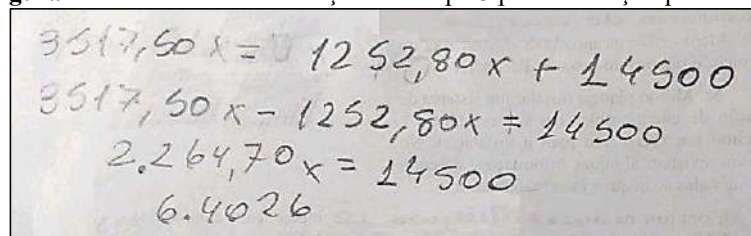 3517,50 x = 1252,80 x + 14500
3517,50 x - 1252,80 x = 14500
2.264,70 x = 14500
6.4026